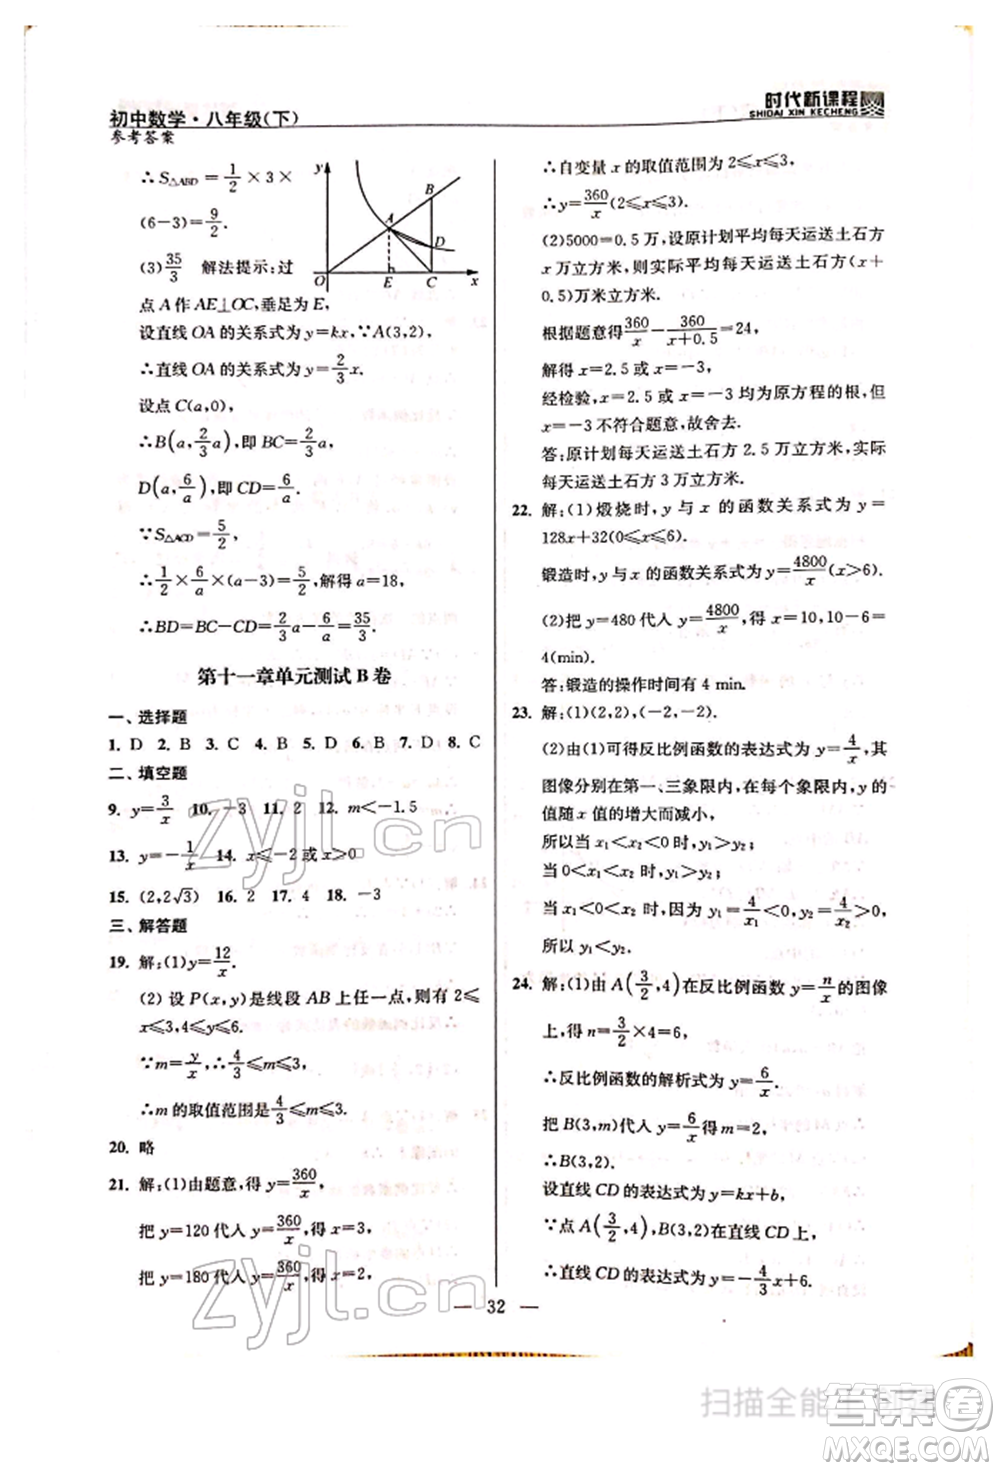 初中数学·八年级(下)
参考答案
时代新课程
SHIDAI XIN KECHENG
∴S△ABD=1/2×3×
(6-3)=9/2.
(3)35/3 解法提示:过
点A作AE⊥OC,垂足为E,
y
B
A
D
O
E
C
x
设直线OA的关系式为y=kx,∵A(3,2),
∴直线OA的关系式为y=2/3x.
设点C(a,0),
∴B(a,2/3a),即BC=2/3a,
D(a,6/a),即CD=6/a,
∵S△ACD=5/2,
∴1/2×6/a×(a-3)=5/2,解得a=18,
∴BD=BC-CD=2/3a-6/a=35/3.
第十一章单元测试B卷
一、选择题
1. D 2. B 3. C 4. B 5. D 6. B 7. D 8. C
二、填空题
9. y=3/x 10. -3 11. 2 12. m<-1.5
13. y=-1/x 14. x≤-2或x>0
15. (2,2√3) 16. 2 17. 4 18. -3
三、解答题
19. 解:(1)y=12/x.
(2)设P(x,y)是线段AB上任一点,则有2≤
x≤3,4≤y≤6.
∵m=y/x,∴4/3≤m≤3.
∴m的取值范围是4/3≤m≤3.
20. 略
21. 解:(1)由题意,得y=360/x,
把y=120代入y=360/x,得x=3,
把y=180代入y=360/x,得x=2,
∴自变量x的取值范围为2≤x≤3,
∴y=360/x(2≤x≤3).
(2)5000=0.5万,设原计划平均每天运送土石方
x万立方米,则实际平均每天运送土石方(x+
0.5)万米立方米.
根据题意得360/x-360/(x+0.5)=24,
解得x=2.5或x=-3,
经检验,x=2.5或x=-3均为原方程的根,但
x=-3不符合题意,故舍去.
答:原计划每天运送土石方2.5万立方米,实际
每天运送土石方3万立方米.
22. 解:(1)煅烧时,y与x的函数关系式为y=
128x+32(0≤x≤6).
锻造时,y与x的函数关系式为y=4800/x(x>6).
(2)把y=480代入y=4800/x,得x=10,10-6=
4(min).
答:锻造的操作时间有4 min.
23. 解:(1)(2,2),(-2,-2).
(2)由(1)可得反比例函数的表达式为y=4/x,其
图像分别在第一、三象限内,在每个象限内,y的
值随x值的增大而减小,
所以当x₁<x₂<0时,y₁>y₂;
当0<x₁<x₂时,y₁>y₂;
当x₁<0<x₂时,因为y₁=4/x₁<0,y₂=4/x₂>0,
所以y₁<y₂.
24. 解:(1)由A(3/2,4)在反比例函数y=n/x的图像
上,得n=3/2×4=6,
∴反比例函数的解析式为y=6/x.
把B(3,m)代入y=6/x得m=2,
∴B(3,2).
设直线CD的表达式为y=kx+b,
∵点A(3/2,4),B(3,2)在直线CD上,
∴直线CD的表达式为y=-4/3x+6.
— 32 —
zyjl.cn
zyjl.cn
答案卷
MXQE.COM